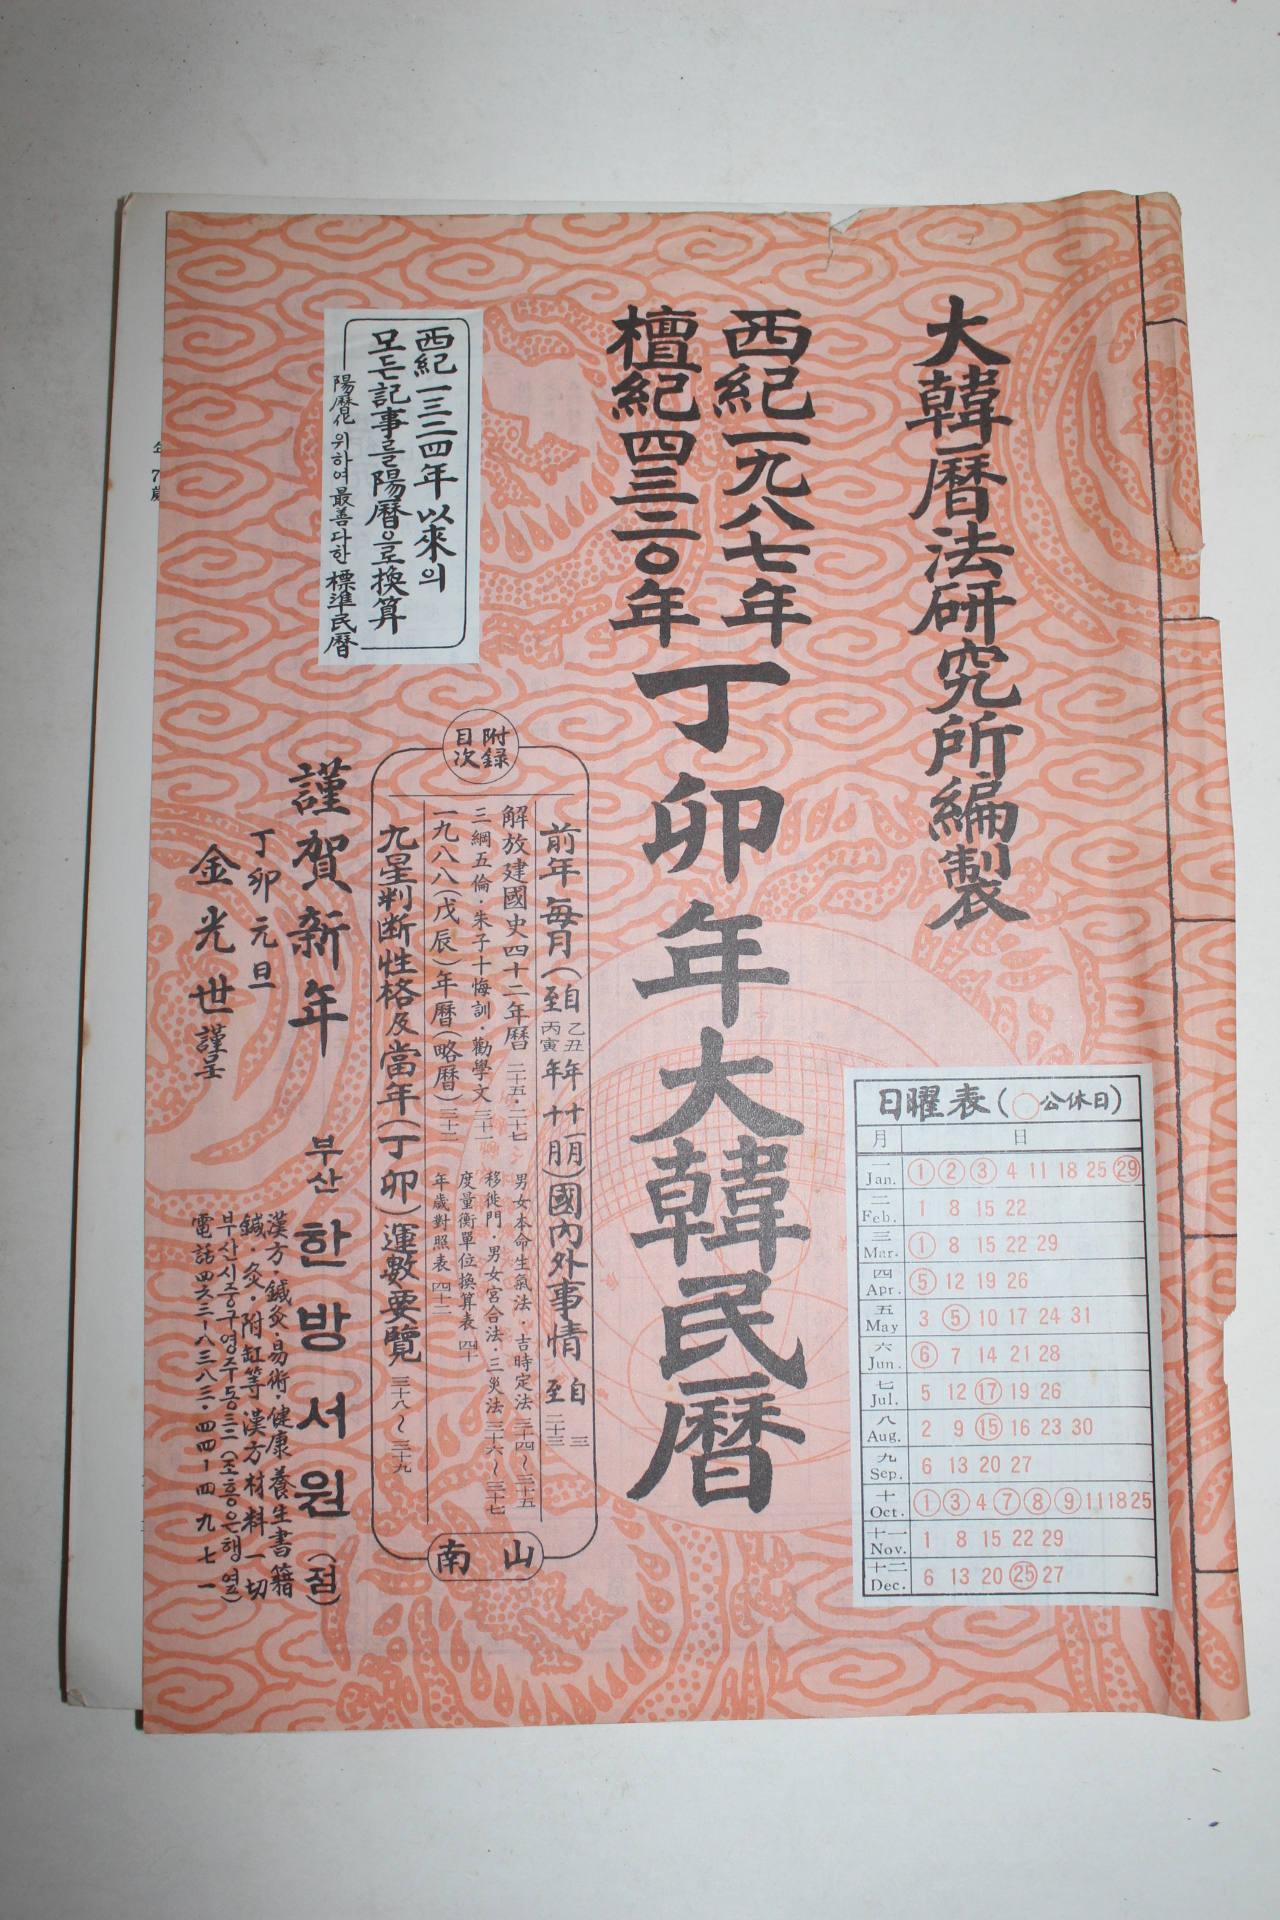 大韓曆法硏究所編製
西紀一九八七年
檀紀四三二〇年
丁卯年大韓民曆
西紀一三二四年以來의
모든記事를陽曆으로換算
陽曆化 위하여最善다한標準民曆
附錄
目次
前年每月(自乙丑年十一月
至丙寅年十月)國內外事情 自三
至二十三
解放建國史四十二年曆 二十五·二十七
男女本命生氣法·吉時定法 三十四~三十五
三綱五倫·朱子十悔訓·勸學文 三十一
移徙門·男女宮合法·三災法 三十六~三十七
度量衡單位換算表 四十
一九八八(戊辰)年曆(略曆) 三十二
年歲對照表 四十二
九星判断性格及當年(丁卯)運數要覽 三十八~三十九
南山
謹賀新年
丁卯元旦
金光世 謹呈
부산 한방서원(점)
漢方·鍼灸·易術·健康養生書籍
鍼·灸·附缸等漢方材料一切
부산시중구영주동三三(조흥은행옆)
電話四六三-八三八三·四四-四九七一
日曜表(○公休日)
月 日
一 Jan. 1 2 3 4 11 18 25 29
二 Feb. 1 8 15 22
三 Mar. 1 8 15 22 29
四 Apr. 5 12 19 26
五 May 3 5 10 17 24 31
六 Jun. 6 7 14 21 28
七 Jul. 5 12 17 19 26
八 Aug. 2 9 15 16 23 30
九 Sep. 6 13 20 27
十 Oct. 1 3 4 7 8 9 11 18 25
十一 Nov. 1 8 15 22 29
十二 Dec. 6 13 20 25 27
年 7歲